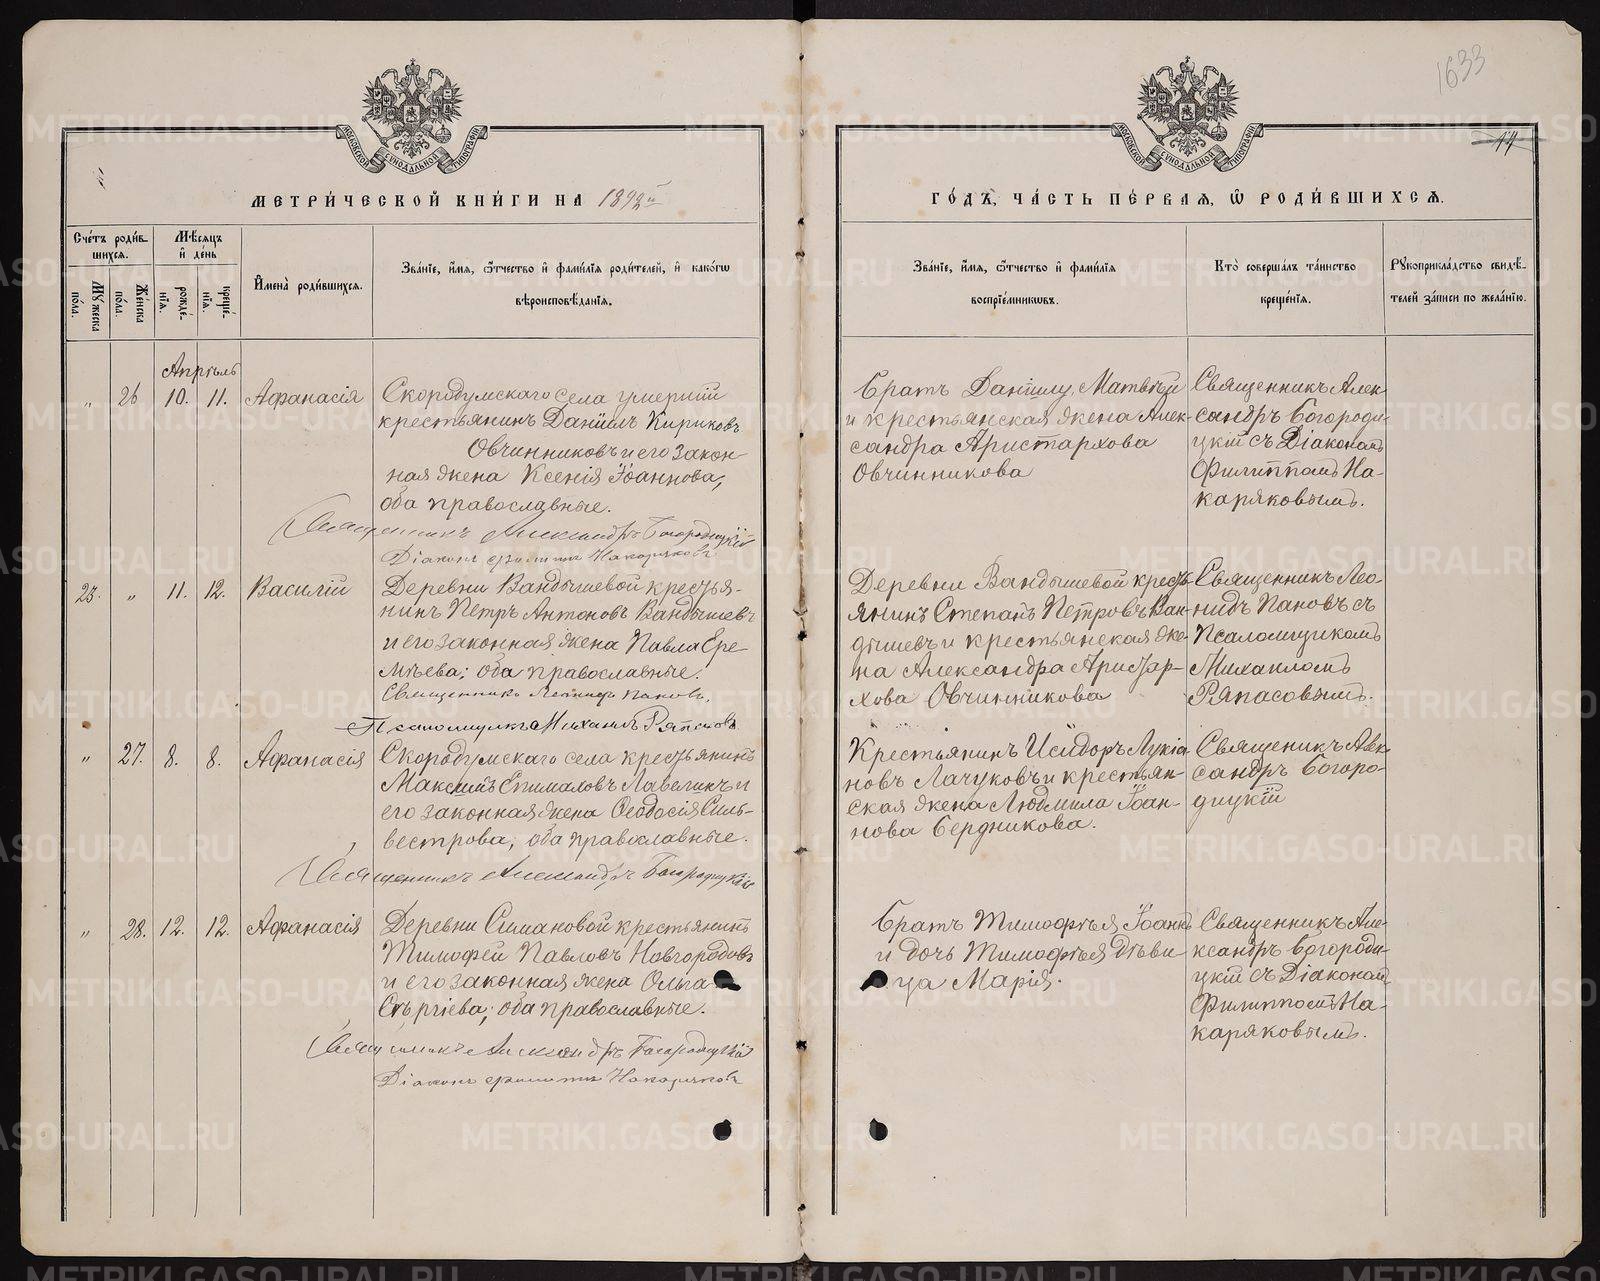 1633
МОСКОВСКОЙ СѴНОДАЛЬНОЙ ТИПОГРАФІИ
МОСКОВСКОЙ СѴНОДАЛЬНОЙ ТИПОГРАФІИ
МЕТРИ́ЧЕСКОЙ КНИ́ГИ НА 1892й
ГО́ДЪ, ЧА́СТЬ ПЕ́РВАѦ, Ѡ РОДИ́ВШИХСѦ.
Сче́тъ роди́в-
шихся.
Мѣ́сяцъ
и҆ де́нь
Му́жеска
по́ла.
Же́нска
по́ла.
рожде́-
нїя.
креще́-
нїя.
И҆мена̀ роди́вшихся.
Зва́нїе, и҆́мя, ѻ҆́тчество и҆ фами́лїя роди́телей, и҆ како́гѡ
вѣроисповѣ́данїя.
Зва́нїе, и҆́мя, ѻ҆́тчество и҆ фами́лїя
воспрїе́мникѡвъ.
Кто̀ соверша́лъ та́инство
креще́нїя.
Рꙋкоприкла́дство свидѣ́-
телей за́писи по жела́нїю.
Апрѣль
„ 26 10. 11. Аѳанасія
Скородумскаго села умершій
крестьянинъ Даніилъ Кириковъ
Овчинниковъ и его закон-
ная жена Ксенія Іоаннова,
оба православные.
Священникъ Александръ Богородицкій
Діаконъ Филиппъ Накаряковъ
Братъ Даніилу, Матвѣй
и крестьянская жена Алек-
сандра Аристархова
Овчинникова
Священникъ Алек-
сандръ Богороди-
цкій съ Діакономъ
Филиппомъ На-
каряковымъ.
23. „ 11. 12. Василій
Деревни Вандышевой крестья-
нинъ Петръ Антоновъ Вандышевъ
и его законная жена Павла Ере-
мѣева; оба православные.
Священникъ Леонидъ Пановъ.
Псаломщикъ Михаилъ Ряпасовъ
Деревни Вандышевой кресть-
янинъ Степанъ Петровъ Ван-
дышевъ и крестьянская же-
на Александра Аристар-
хова Овчинникова
Священникъ Лео-
нидъ Пановъ съ
Псаломщикомъ
Михаиломъ
Ряпасовымъ.
„ 27. 8. 8. Аѳанасія
Скородумскаго села крестьянинъ
Максимъ
его законная жена Ѳеодосія Силь-
вестрова; оба православные.
Священникъ Александръ Богородицкій
Крестьянинъ Исидоръ Лукіа-
новъ Лачуковъ и крестьян-
ская жена Людмила Іоан-
нова Бердникова.
Священикъ Алек-
сандръ Богоро-
дицкій
„ 28. 12. 12. Аѳанасія
Деревни Симановой крестьянинъ
Тимофей Павловъ Новгородовъ
и его законная жена Ольга
Сергіева; оба православные.
Священникъ Александръ Богородицкій
Діаконъ Филиппъ Накаряковъ
Братъ Тимофѣя Іоаннъ
и дочь Тимофѣя дѣви-
ца Марія.
Священникъ Але-
ксандръ Богороди-
цкій съ Діакономъ
Филиппомъ На-
каряковымъ.
METRIKI.GASO-URAL.RU